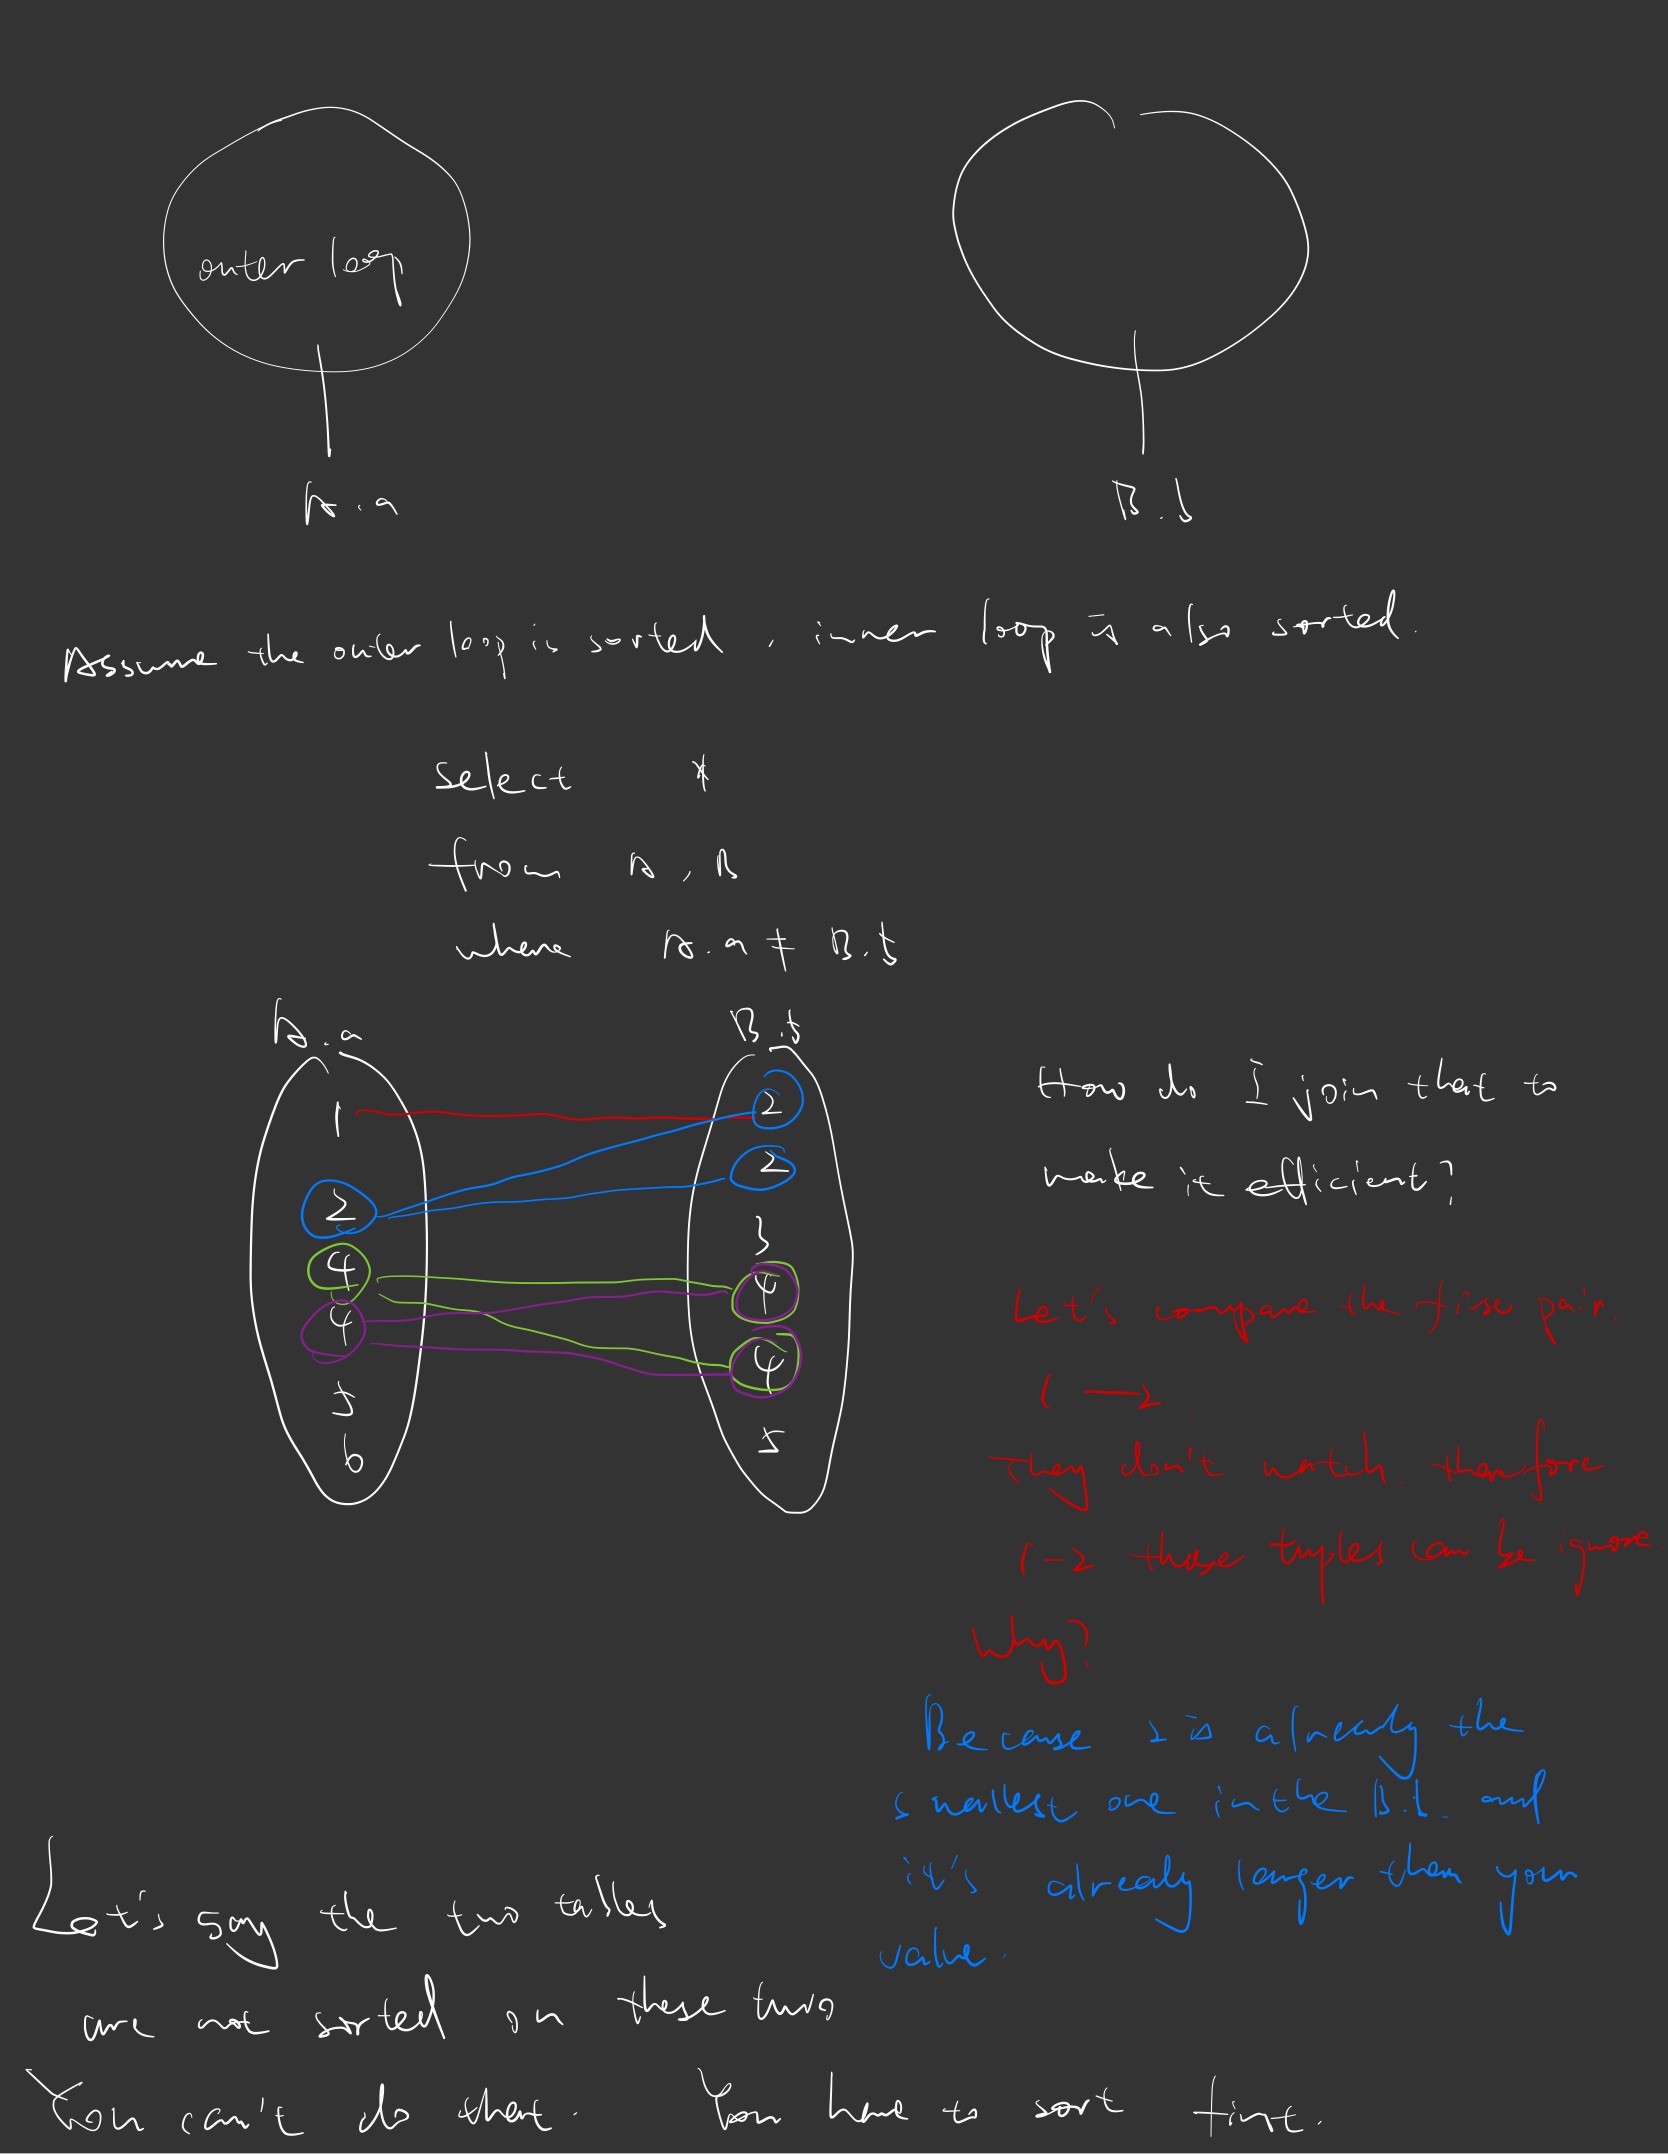 outer loop
A.a
B.b
Assume the outer loop is sorted, inner loop is also sorted.
select *
from A, B
where A.a ≠ B.b
A.a
B.b
1
2
4
4
5
6
2
2
3
4
4
5
How do I join that to
make it efficient?
Let's compare the first pair.
1 → 2
They don't match. therefore
1-2 those tuples can be ignore.
Why?
Because 2 is already the
smallest one in the B.b. and
it's already larger than your
value.
Let's say the two tables
are not sorted on these two
You can't do that. You have to sort first.